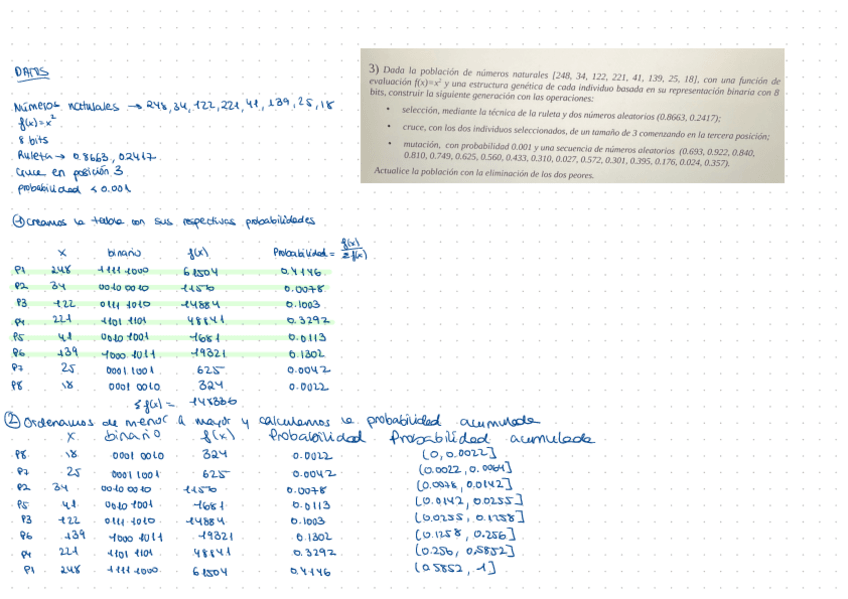 DATOS
Números naturales → 248, 34, 122, 221, 41, 139, 25, 18
f(x)=x²
8 bits
Ruleta → 0.8663, 0.2417
Cruce en posición 3
probabilidad < 0.001
3) Dada la población de números naturales [248, 34, 122, 221, 41, 139, 25, 18], con una función de
evaluación f(x)=x² y una estructura genética de cada individuo basada en su representación binaria con 8
bits, construir la siguiente generación con las operaciones:
• selección, mediante la técnica de la ruleta y dos números aleatorios (0.8663, 0.2417);
• cruce, con los dos individuos seleccionados, de un tamaño de 3 comenzando en la tercera posición;
• mutación, con probabilidad 0.001 y una secuencia de números aleatorios (0.693, 0.922, 0.840,
0.810, 0.749, 0.625, 0.560, 0.433, 0.310, 0.027, 0.572, 0.301, 0.395, 0.176, 0.024, 0.357).
Actualice la población con la eliminación de los dos peores.
① Creamos la tabla con sus respectivas probabilidades
x binario f(x) Probabilidad = f(x)/Σf(x)
P1 248 1111 1000 61504 0.4146
P2 34 0010 0010 1156 0.0078
P3 122 0111 1010 14884 0.1003
P4 221 1101 1101 48841 0.3292
P5 41 0010 1001 1681 0.0113
P6 139 1000 1011 19321 0.1302
P7 25 0001 1001 625 0.0042
P8 18 0001 0010 324 0.0022
Σf(x) = 148336
② Ordenamos de menor a mayor y calculamos la probabilidad acumulada
x binario f(x) Probabilidad Probabilidad acumulada
P8 18 0001 0010 324 0.0022 (0, 0.0022]
P7 25 0001 1001 625 0.0042 (0.0022, 0.0064]
P2 34 0010 0010 1156 0.0078 (0.0078, 0.0142]
P5 41 0010 1001 1681 0.0113 (0.0142, 0.0255]
P3 122 0111 1010 14884 0.1003 (0.0255, 0.1258]
P6 139 1000 1011 19321 0.1302 (0.1258, 0.256]
P4 221 1101 1101 48841 0.3292 (0.256, 0.5852]
P1 248 1111 1000 61504 0.4146 (0.5852, 1]